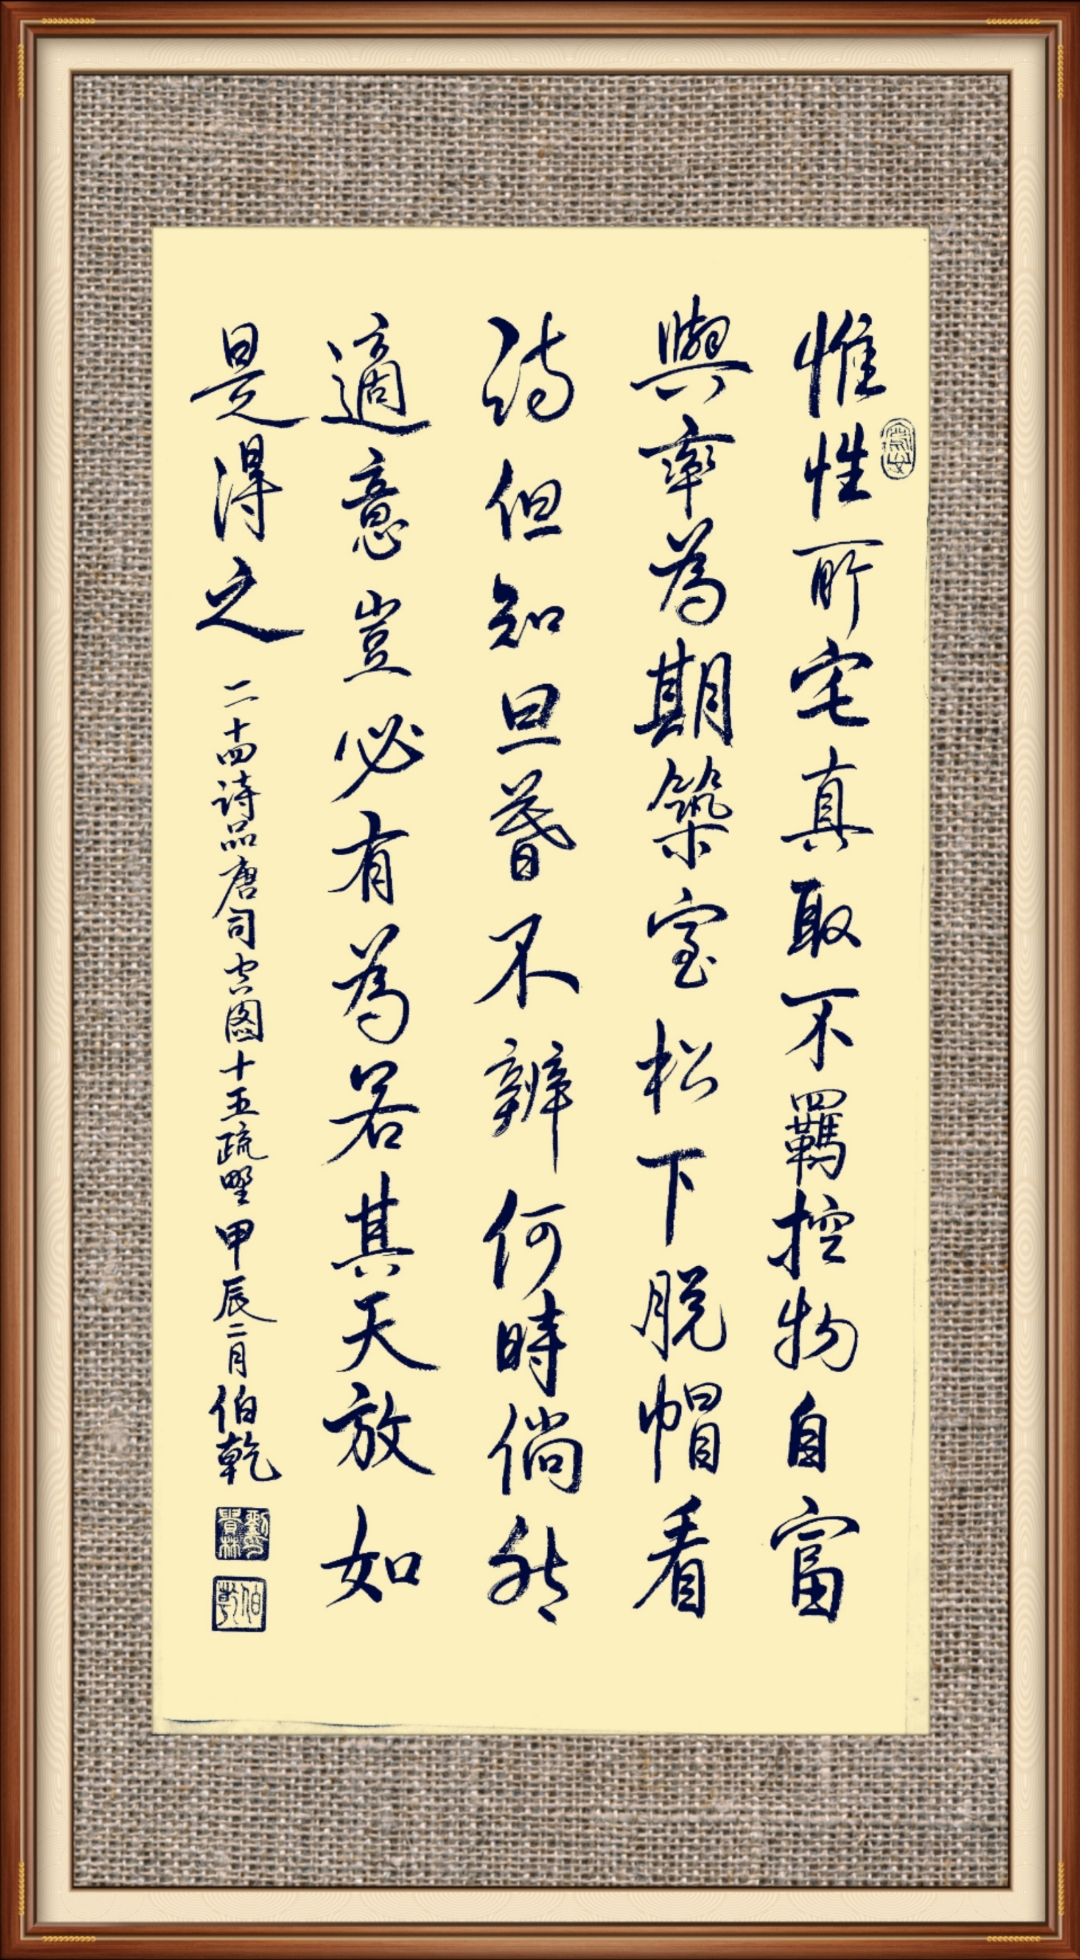 惟性所宅真取不羈控物自富
與率為期築室松下脫帽看
詩但知旦暮不辨何時倘然
適意豈必有為若其天放如
是得之
二十四詩品唐司空图十五疏野甲辰二月伯乾
伯乾